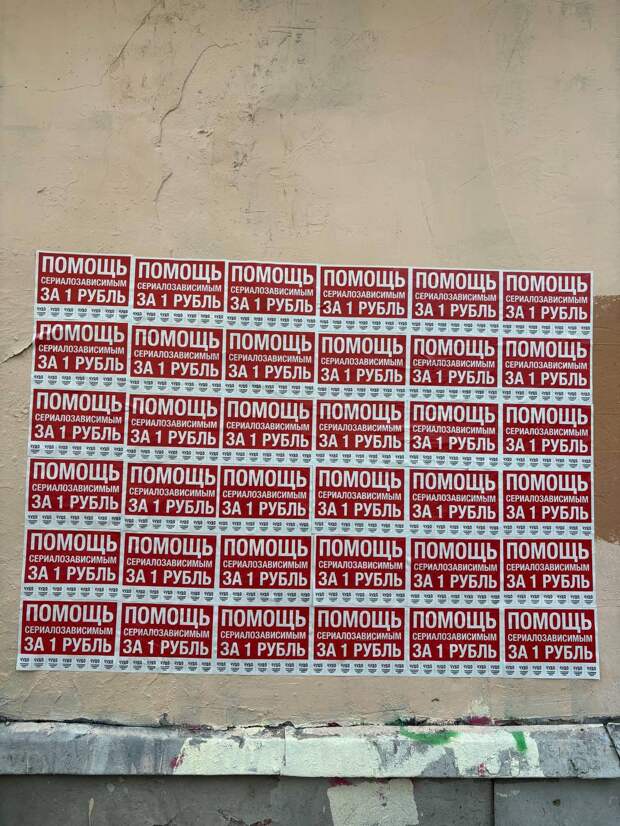 ПОМОЩЬ
СЕРИАЛОЗАВИСИМЫМ
ЗА 1 РУБЛЬ
ПОМОЩЬ
СЕРИАЛОЗАВИСИМЫМ
ЗА 1 РУБЛЬ
ПОМОЩЬ
СЕРИАЛОЗАВИСИМЫМ
ЗА 1 РУБЛЬ
ПОМОЩЬ
СЕРИАЛОЗАВИСИМЫМ
ЗА 1 РУБЛЬ
ПОМОЩЬ
СЕРИАЛОЗАВИСИМЫМ
ЗА 1 РУБЛЬ
ПОМОЩЬ
СЕРИАЛОЗАВИСИМЫМ
ЗА 1 РУБЛЬ
ПОМОЩЬ
СЕРИАЛОЗАВИСИМЫМ
ЗА 1 РУБЛЬ
ПОМОЩЬ
СЕРИАЛОЗАВИСИМЫМ
ЗА 1 РУБЛЬ
ПОМОЩЬ
СЕРИАЛОЗАВИСИМЫМ
ЗА 1 РУБЛЬ
ПОМОЩЬ
СЕРИАЛОЗАВИСИМЫМ
ЗА 1 РУБЛЬ
ПОМОЩЬ
СЕРИАЛОЗАВИСИМЫМ
ЗА 1 РУБЛЬ
ПОМОЩЬ
СЕРИАЛОЗАВИСИМЫМ
ЗА 1 РУБЛЬ
ПОМОЩЬ
СЕРИАЛОЗАВИСИМЫМ
ЗА 1 РУБЛЬ
ПОМОЩЬ
СЕРИАЛОЗАВИСИМЫМ
ЗА 1 РУБЛЬ
ПОМОЩЬ
СЕРИАЛОЗАВИСИМЫМ
ЗА 1 РУБЛЬ
ПОМОЩЬ
СЕРИАЛОЗАВИСИМЫМ
ЗА 1 РУБЛЬ
ПОМОЩЬ
СЕРИАЛОЗАВИСИМЫМ
ЗА 1 РУБЛЬ
ПОМОЩЬ
СЕРИАЛОЗАВИСИМЫМ
ЗА 1 РУБЛЬ
ПОМОЩЬ
СЕРИАЛОЗАВИСИМЫМ
ЗА 1 РУБЛЬ
ПОМОЩЬ
СЕРИАЛОЗАВИСИМЫМ
ЗА 1 РУБЛЬ
ПОМОЩЬ
СЕРИАЛОЗАВИСИМЫМ
ЗА 1 РУБЛЬ
ПОМОЩЬ
СЕРИАЛОЗАВИСИМЫМ
ЗА 1 РУБЛЬ
ПОМОЩЬ
СЕРИАЛОЗАВИСИМЫМ
ЗА 1 РУБЛЬ
ПОМОЩЬ
СЕРИАЛОЗАВИСИМЫМ
ЗА 1 РУБЛЬ
ПОМОЩЬ
СЕРИАЛОЗАВИСИМЫМ
ЗА 1 РУБЛЬ
ПОМОЩЬ
СЕРИАЛОЗАВИСИМЫМ
ЗА 1 РУБЛЬ
ПОМОЩЬ
СЕРИАЛОЗАВИСИМЫМ
ЗА 1 РУБЛЬ
ПОМОЩЬ
СЕРИАЛОЗАВИСИМЫМ
ЗА 1 РУБЛЬ
ПОМОЩЬ
СЕРИАЛОЗАВИСИМЫМ
ЗА 1 РУБЛЬ
ПОМОЩЬ
СЕРИАЛОЗАВИСИМЫМ
ЗА 1 РУБЛЬ
ПОМОЩЬ
СЕРИАЛОЗАВИСИМЫМ
ЗА 1 РУБЛЬ
ПОМОЩЬ
СЕРИАЛОЗАВИСИМЫМ
ЗА 1 РУБЛЬ
ПОМОЩЬ
СЕРИАЛОЗАВИСИМЫМ
ЗА 1 РУБЛЬ
ПОМОЩЬ
СЕРИАЛОЗАВИСИМЫМ
ЗА 1 РУБЛЬ
ПОМОЩЬ
СЕРИАЛОЗАВИСИМЫМ
ЗА 1 РУБЛЬ
ПОМОЩЬ
СЕРИАЛОЗАВИСИМЫМ
ЗА 1 РУБЛЬ